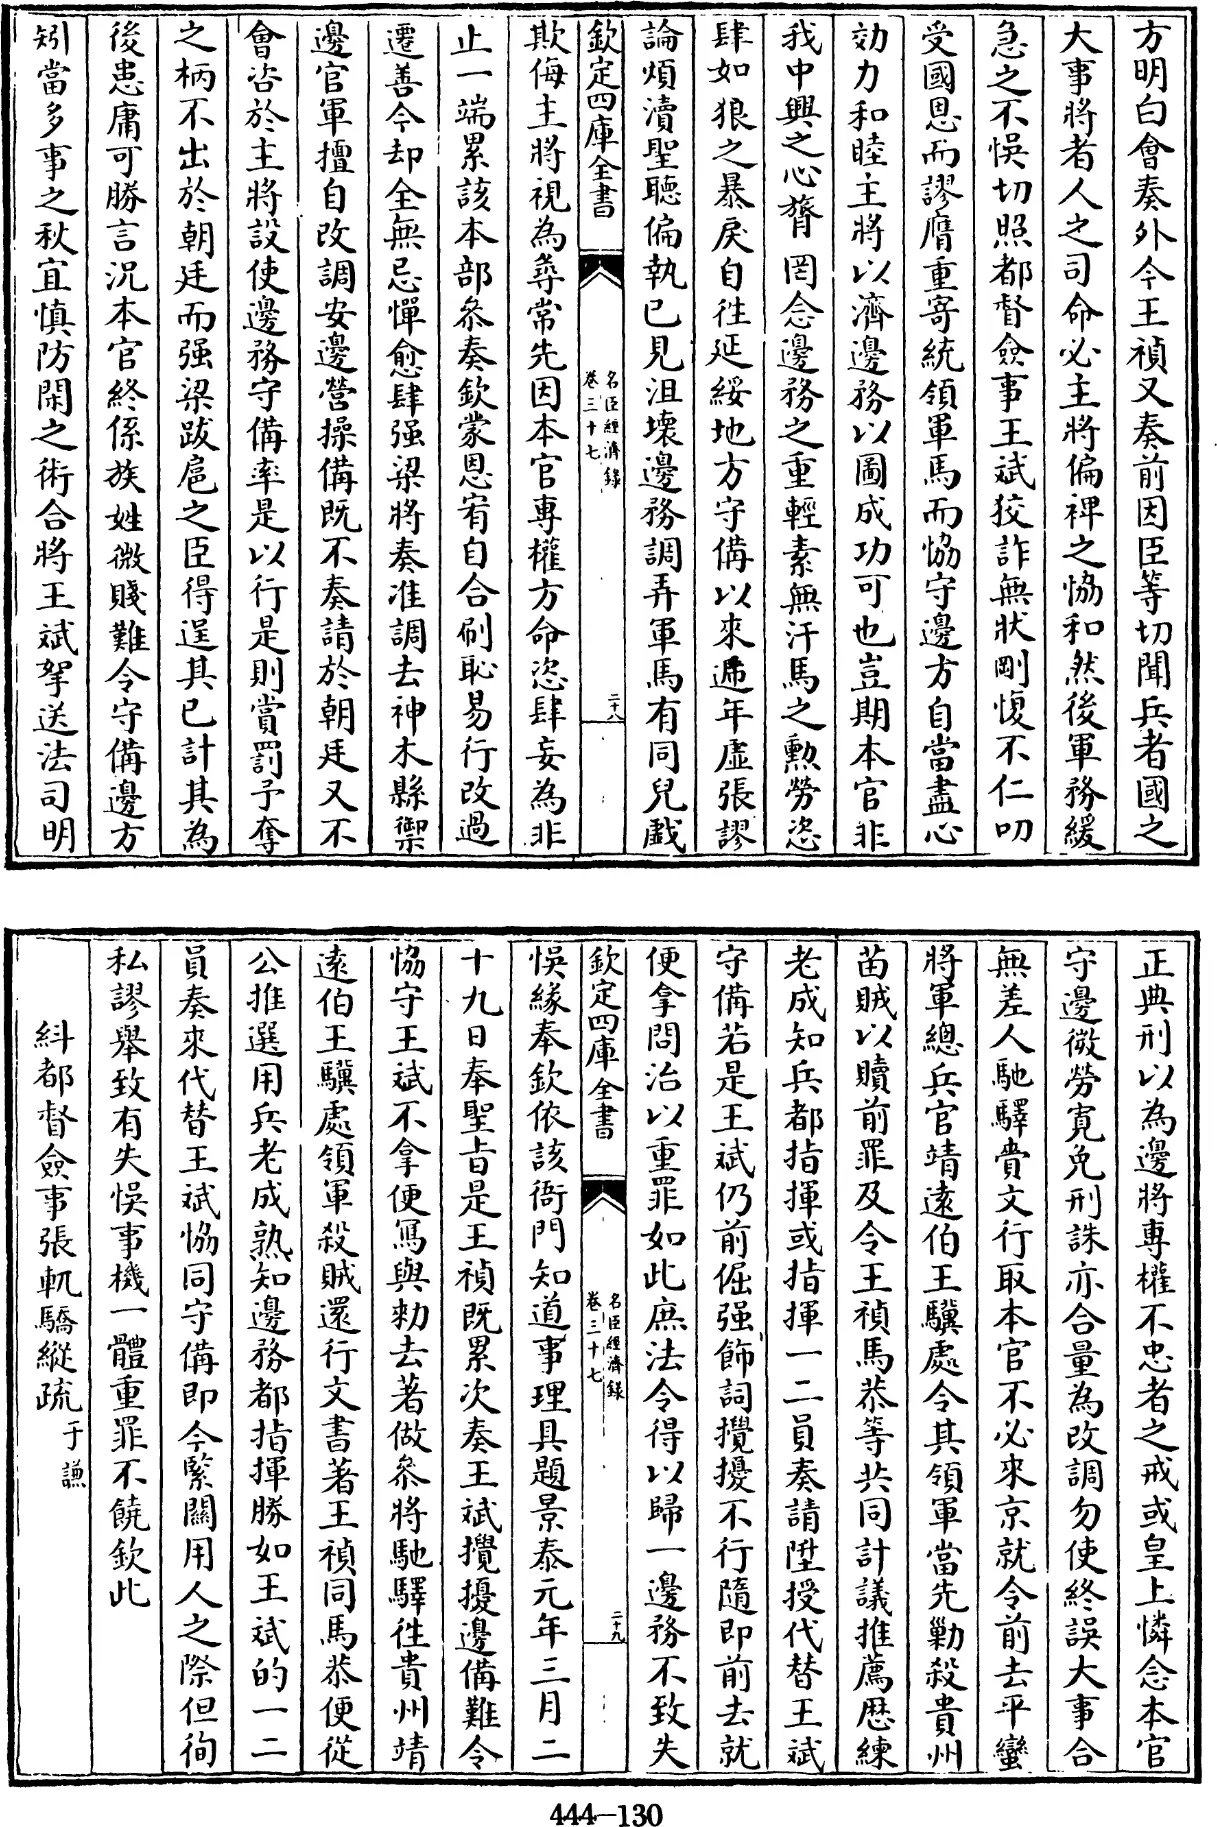 方明白會奏外今王禎又奏前因臣等切聞兵者國之
大事將者人之司命必主將偏裨之恊和然後軍務緩
急之不悞切照都督僉事王斌狡詐無狀剛愎不仁叨
受國恩而謬膺重寄統領軍馬而恊守邊方自當盡心
効力和睦主將以濟邊務以圖成功可也豈期本官非
我中興之心膂罔念邊務之重輕素無汗馬之勲勞恣
肆如狼之暴戾自徃延綏地方守備以來遞年虛張謬
論煩瀆聖聽偏執已見沮壞邊務調弄軍馬有同兒戲
欽定四庫全書
名臣經濟錄
卷三十七
二十八
欺侮主將視為尋常先因本官専權方命恣肆妄為非
止一端累該本部叅奏欽蒙恩宥自合刷恥易行改過
遷善今却全無忌憚愈肆强梁將奏准調去神木縣禦
邊官軍擅自改調安邊營操備既不奏請於朝廷又不
會咨於主將設使邊務守備率是以行是則賞罰予奪
之柄不出於朝廷而强梁跋扈之臣得逞其已計其為
後患庸可勝言況本官終係族姓微賤難令守備邊方
矧當多事之秋宜慎防閑之術合將王斌拏送法司明
正典刑以為邊將専權不忠者之戒或皇上憐念本官
守邊微勞寛免刑誅亦合量為改調勿使終誤大事合
無差人馳驛賫文行取本官不必來京就令前去平蠻
將軍總兵官靖遠伯王驥處令其領軍當先勦殺貴州
苗賊以贖前罪及令王禎馬恭等共同計議推薦歴練
老成知兵都指揮或指揮一二員奏請陞授代替王斌
守備若是王斌仍前倔强飾詞攪擾不行隨即前去就
便拿問治以重罪如此庶法令得以歸一邊務不致失
欽定四庫全書
名臣經濟錄
卷三十七
二十九
悞緣奉欽依該衙門知道事理具題景泰元年三月二
十九日奉聖旨是王禎既累次奏王斌攪擾邊備難令
恊守王斌不拿便寫與勅去著做叅將馳驛徃貴州靖
逺伯王驥處領軍殺賊還行文書著王禎同馬恭便從
公推選用兵老成熟知邊務都指揮勝如王斌的一二
員奏來代替王斌恊同守備即今緊關用人之際但徇
私謬舉致有失悞事機一體重罪不饒欽此
糾都督僉事張軏驕縱疏 于謙
444-130